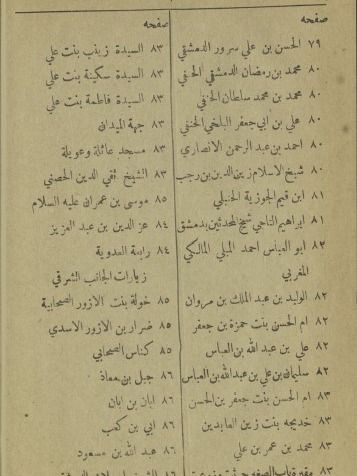 صفحه
٧٩ الحسن بن علي سرور الدمشقي
٨٠ محمد بن رمضان الدمشقي الحنفي
٨٠ محمد بن محمد سلطان الحنفي
٨٠ علي بن ابي جعفر البلخي الحنفي
٨٠ احمد بن عبد الرحمن الانصاري
٨٠ شيخ الاسلام زين الدين بن رجب
٨١ ابن قيم الجوزية الحنبلي
٨١ ابراهيم الناجي شيخ المحدثين بدمشق
٨٢ ابو العباس احمد المالكي
المغربي
٨٢ الوليد بن عبد الملك بن مروان
٨٢ ام الحسن بنت حمزة بن جعفر
٨٢ علي بن عبد الله بن العباس
٨٢ سليمان بن علي بن عبد الله بن العباس
٨٣ ام الحسن بنت جعفر بن الحسن
٨٣ خديجه بنت زين العابدين
٨٣ محمد بن عمر بن علي
صفحه
٨٣ السيدة زينب بنت علي
٨٣ السيدة سكينة بنت علي
٨٣ السيدة فاطمة بنت علي
٨٣ جهة الميدان
٨٣ مسجد عاتكة وعويلة
٨٣ الشيخ تقي الدين الحصني
٨٥ موسى بن عمران عليه السلام
٨٤ عز الدين بن عبد العزيز
٨٤ رابعة العدوية
زيارات الجانب الشرقي
٨٥ خولة بنت الازور الصحابية
٨٥ ضرار بن الازور الاسدي
٨٥ كناس الصحابي
٨٦ جبل بن معاذ
٨٦ ابان بن ابان
٨٦ ابي بن كعب
٨٦ عبد الله بن مسعود